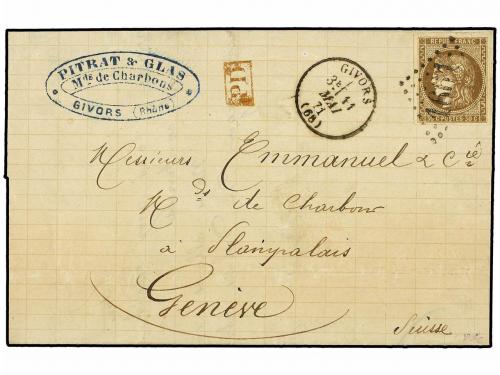 PITRAT & GLAS
Mds de Charbons
GIVORS (Rhône)
PD
GIVORS
3e 11
MAI
71
(68)
REPUB FRANC
POSTES 30 C
Messieurs Emmanuel & Cie
Mds de Charbon
à Plainpalais
Genève
Suisse